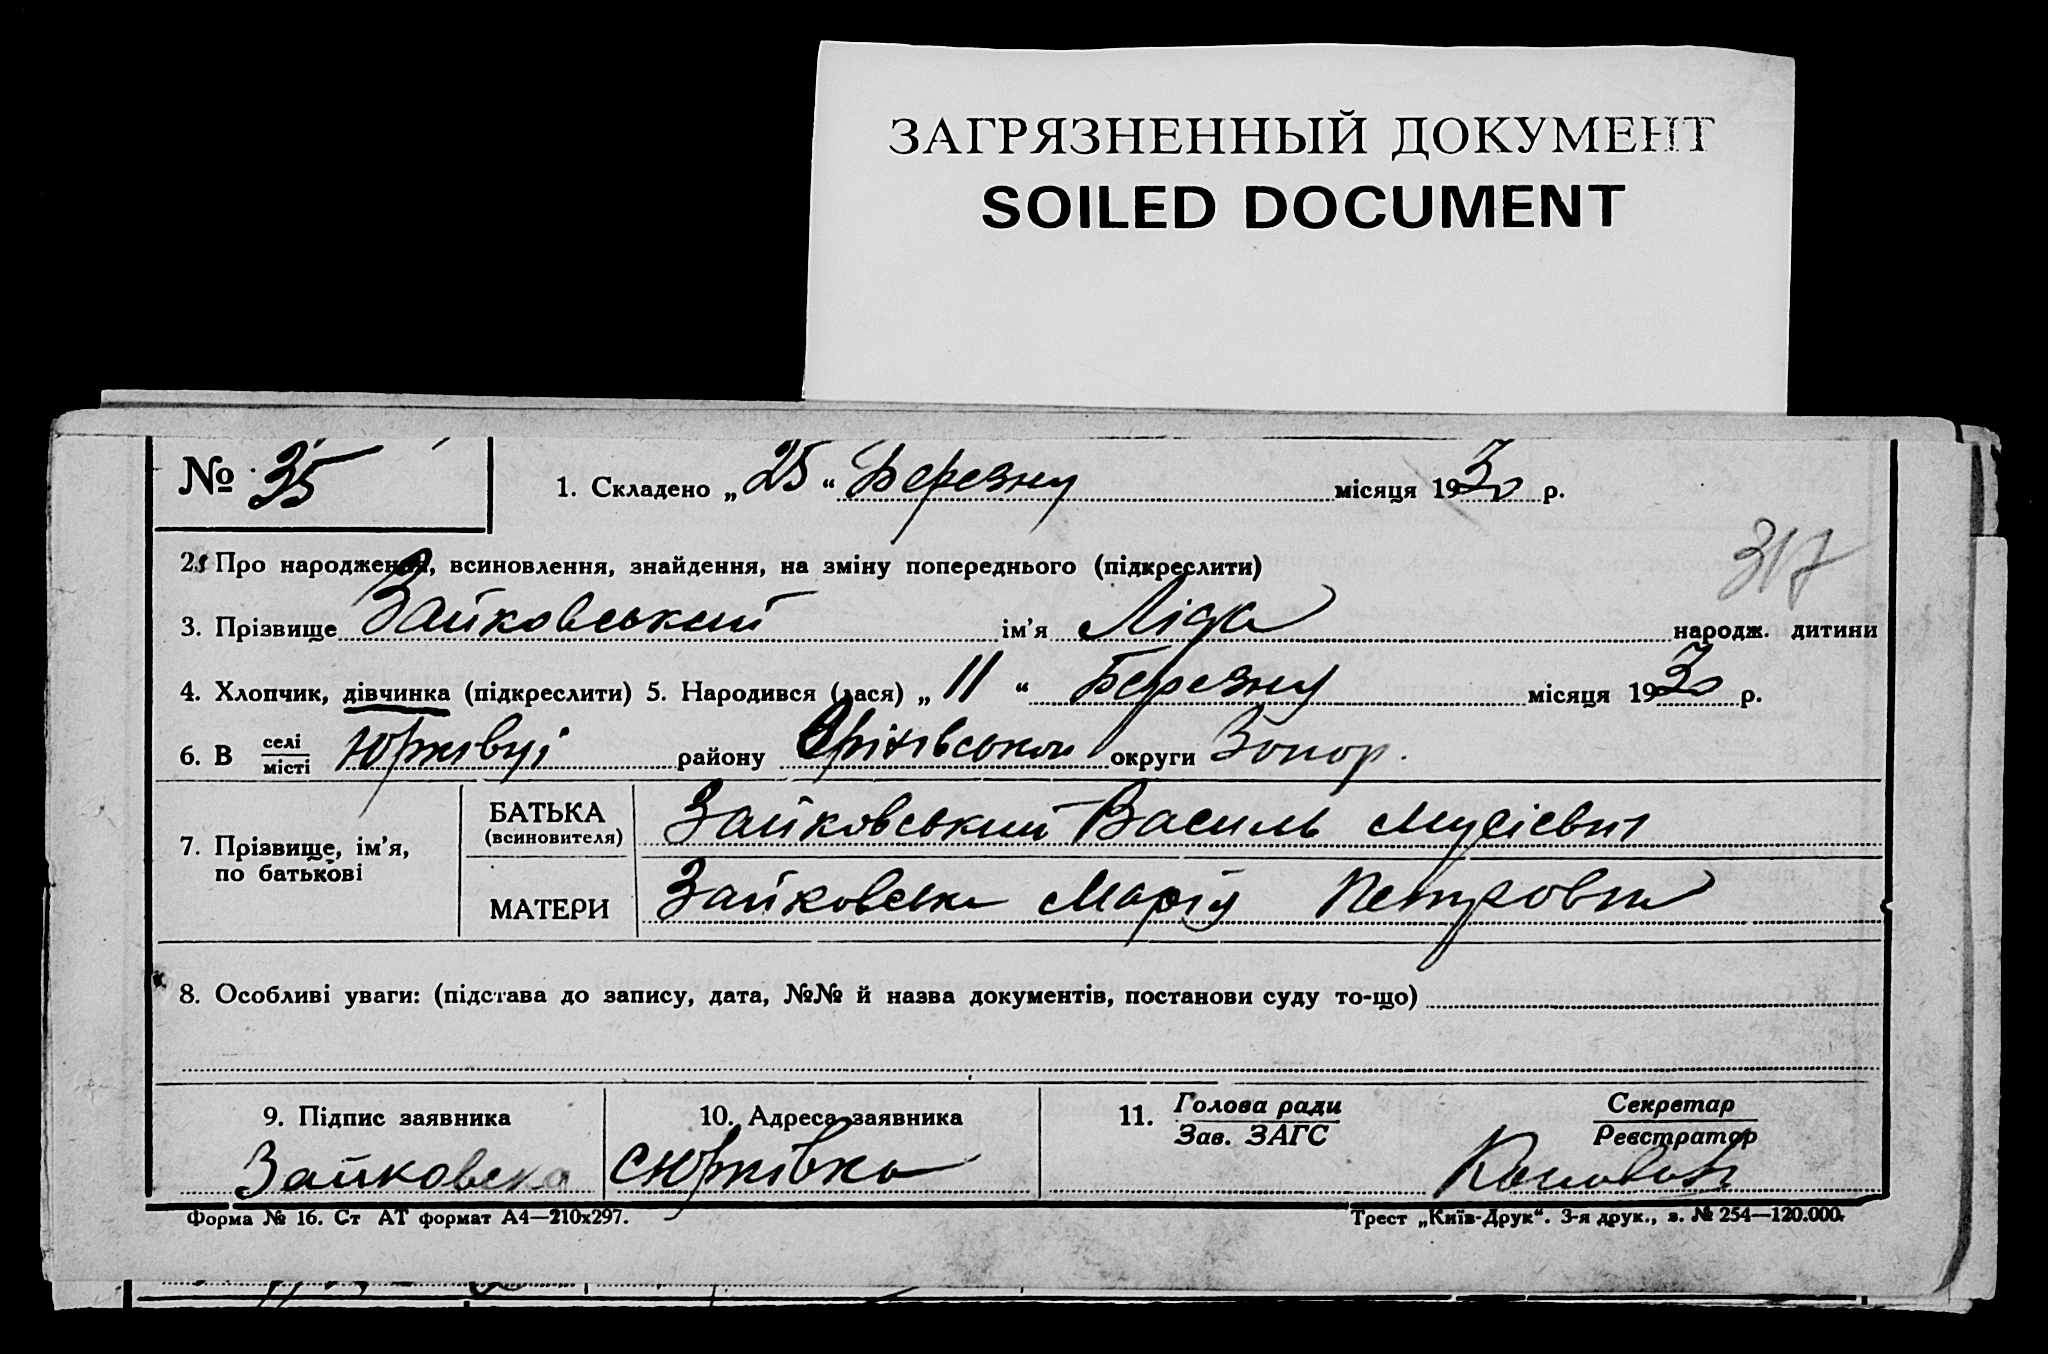 ЗАГРЯЗНЕННЫЙ ДОКУМЕНТ
SOILED DOCUMENT
№ 35
1. Складено „ 25 “ Березня місяця 1930 р.
2. Про народження, всиновлення, знайдення, на зміну попереднього (підкреслити)
317
3. Прізвище Зайковський ім'я Ліда народж. дитини
4. Хлопчик, дівчинка (підкреслити) 5. Народився (лася) „ 11 “ Березня місяця 1930 р.
6. В селі/місті Юрківці району Оріхівського округи Запор.
7. Прізвище, ім'я, по батькові
БАТЬКА (всиновителя) Зайковський Василь Мусієвич
МАТЕРИ Зайковська Марія Петровна
8. Особливі уваги: (підстава до запису, дата, №№ й назва документів, постанови суду то-що)
9. Підпис заявника
10. Адреса заявника
11. Голова ради
Зав. ЗАГС
Секретар
Реєстратор
Зайковска
с Юрківка
Форма № 16. Ст АТ формат А4—210х297.
Трест „Київ-Друк“. 3-я друк., з. № 254—120.000.